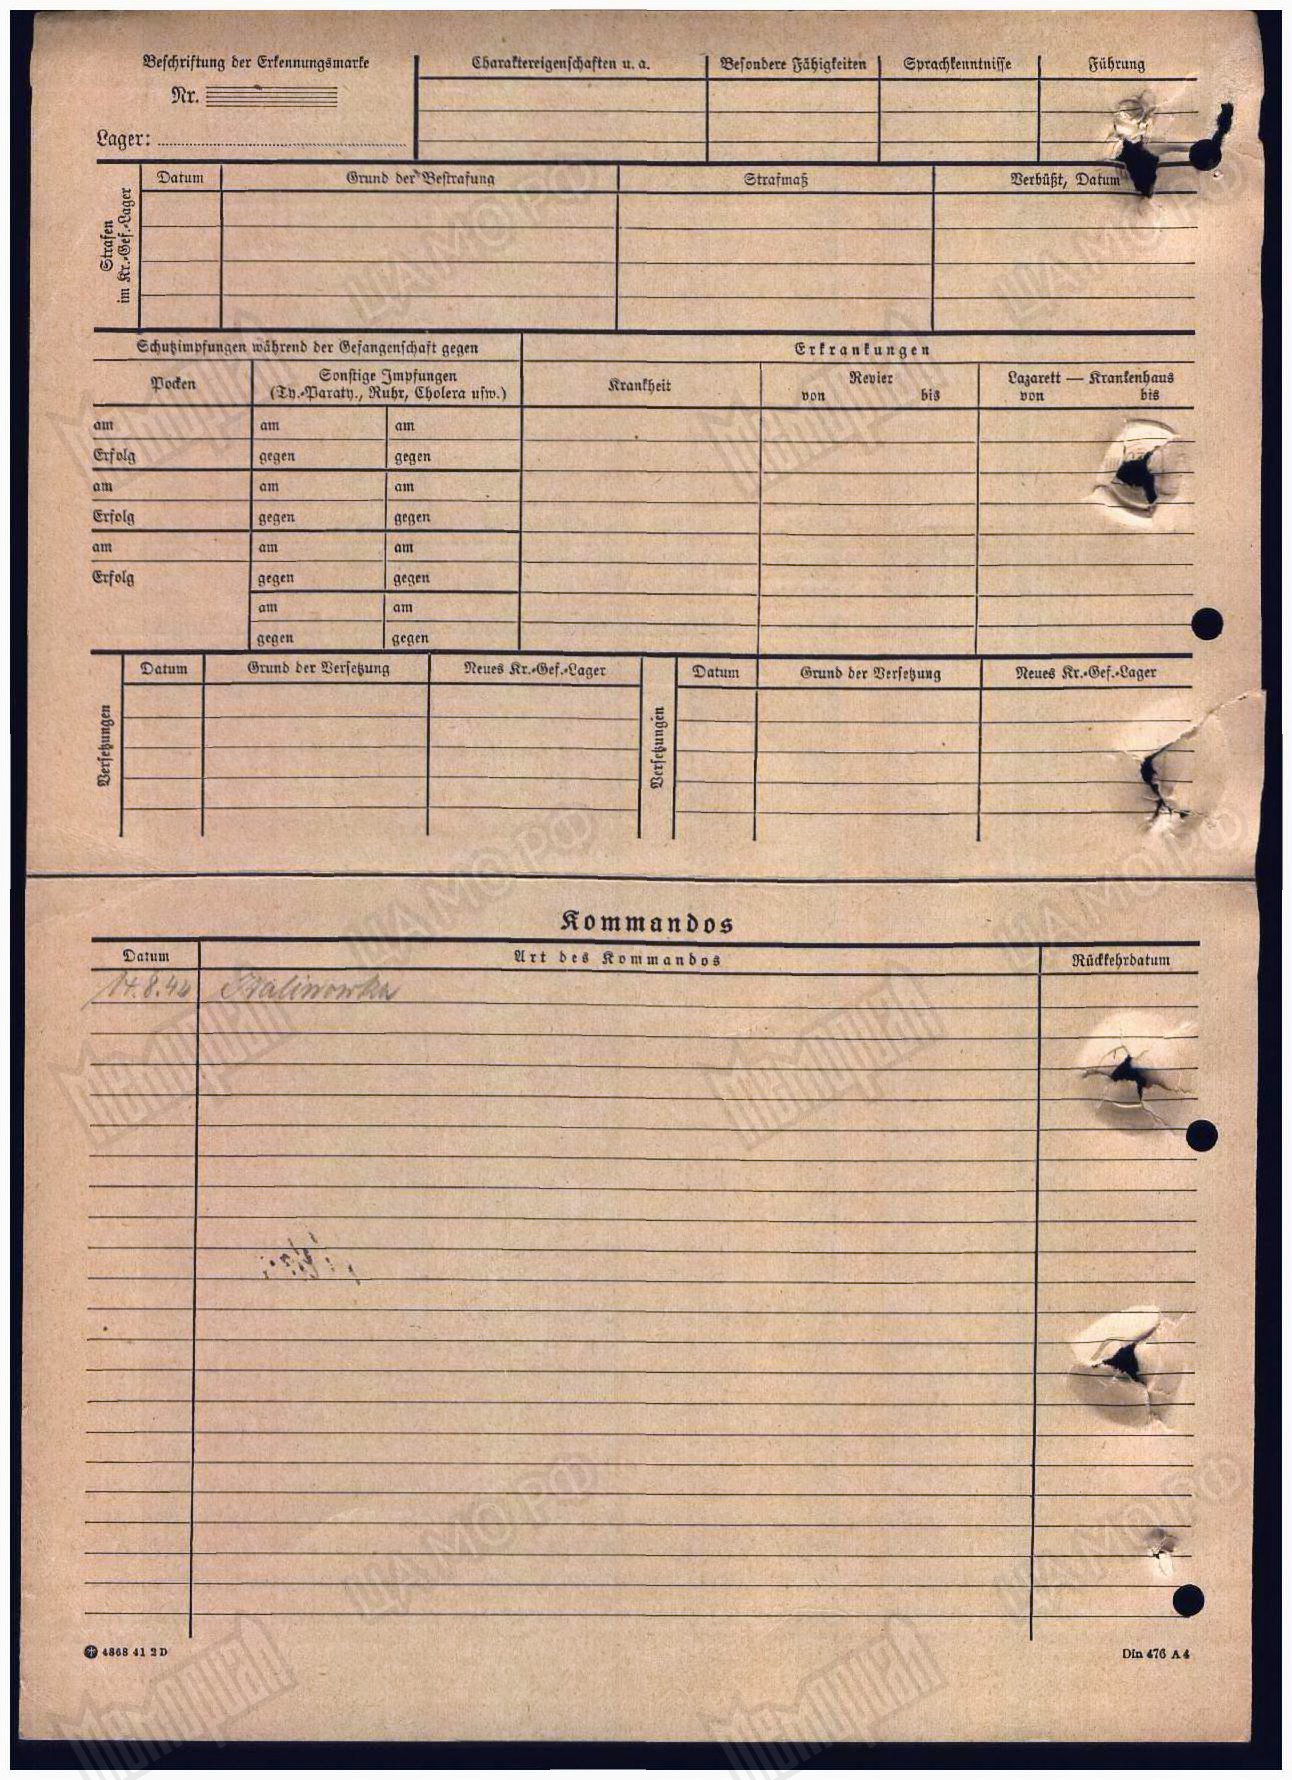 Beschriftung der Erkennungsmarke
Nr.
Lager:
Charaktereigenschaften u. a.
Besondere Fähigkeiten
Sprachkenntnisse
Führung
Strafen
im Kr.-Gef.-Lager
Datum
Grund der Bestrafung
Strafmaß
Verbüßt, Datum
Schutzimpfungen während der Gefangenschaft gegen
Erkrankungen
Pocken
Sonstige Impfungen
(Ty.-Paraty., Ruhr, Cholera usw.)
Krankheit
Revier
von bis
Lazarett — Krankenhaus
von bis
am am am
Erfolg gegen gegen
am am am
Erfolg gegen gegen
am am am
Erfolg gegen gegen
am am
gegen gegen
Versetzungen
Datum
Grund der Versetzung
Neues Kr.-Gef.-Lager
Versetzungen
Datum
Grund der Versetzung
Neues Kr.-Gef.-Lager
Kommandos
Datum
Art des Kommandos
Rückkehrdatum
14.8.42 Kalinowka
4868 41 2 D
Din 476 A 4
Мемориал
ЦАМО РФ